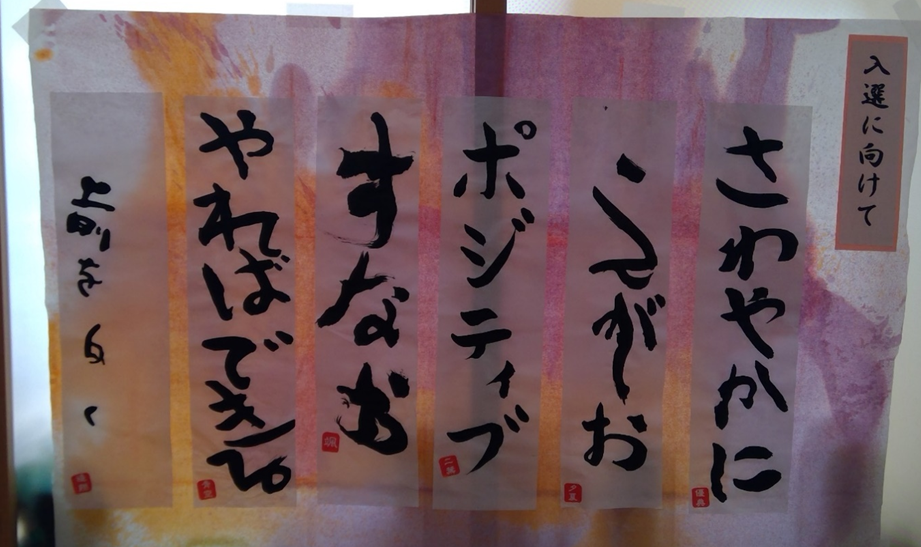 入選に向けて
さわやかに
えがお
ポジティブ
すなお
やればできる
前を向く